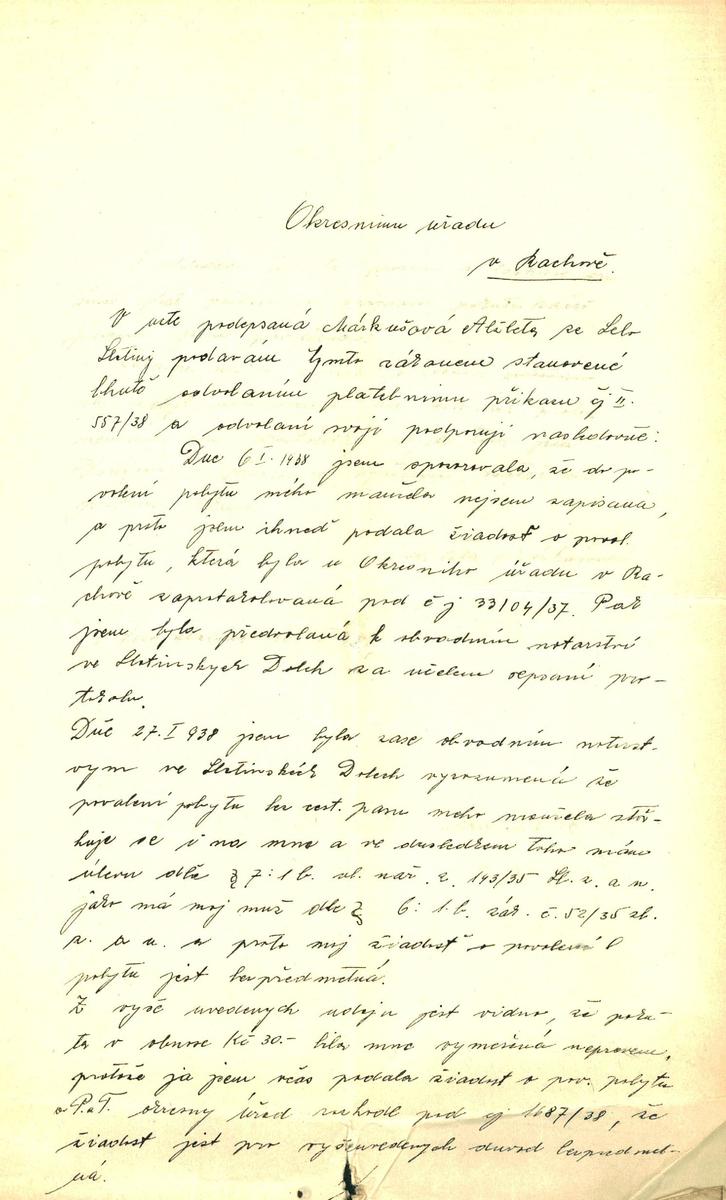 Okresnimu úřadu
v Rachově.
V uctě podepsaná Márkušová Alžběta ze Selo
Slatiny podávám tymto zákonem stanovené
lhutě odvolanim platebnimu přikazu čj II.
557/38 a odvolani svoji podporuji nasledovně:
Dne 6 I. 1938 jsem spozorovala, že do po-
volení pobytu mého manžela nejsem zapisana,
a proto jsem ihneď podala žiadosť o povol.
pobytu, která byla u Okresniho úřadu v Ra-
chově zaprotokolovaná pod č j 33104/37. Pak
jsem byla předvolaná k obvodnim notarství
ve Slatinskych Dolech za učelem sepsaní pro-
tokolu.
Dně 27. I 938 jsem byla zase obvodnim notarst-
vym ve Slatinských Dolech vyrozumená že
povolení pobytu bez cest. pasu meho manžela stá-
huje se i na mne a ve dusledkem toho mám
úlevu dlě § 7: 1 b. vl. nař. z. 143/35 Sb. z. a n.
jako má moj muž dle § 6: 1. b. zák. č. 52/35 sb.
z. a n. a proto moj žiadosť o povolení
pobytu jest bezpředmetná.
Z vyšě uvedenych udaju jest vidno, že poku-
ta v obnose Kč 30.- bila mne vymeřená nepravem,
protože ja jsem včas podala žiadost o pov. pobytu
a P.T. okresny úřad rozhodl pod čj 1687/38, že
žiadost jest pro vyšeuvedenych duvod bezpředmet-
ná.